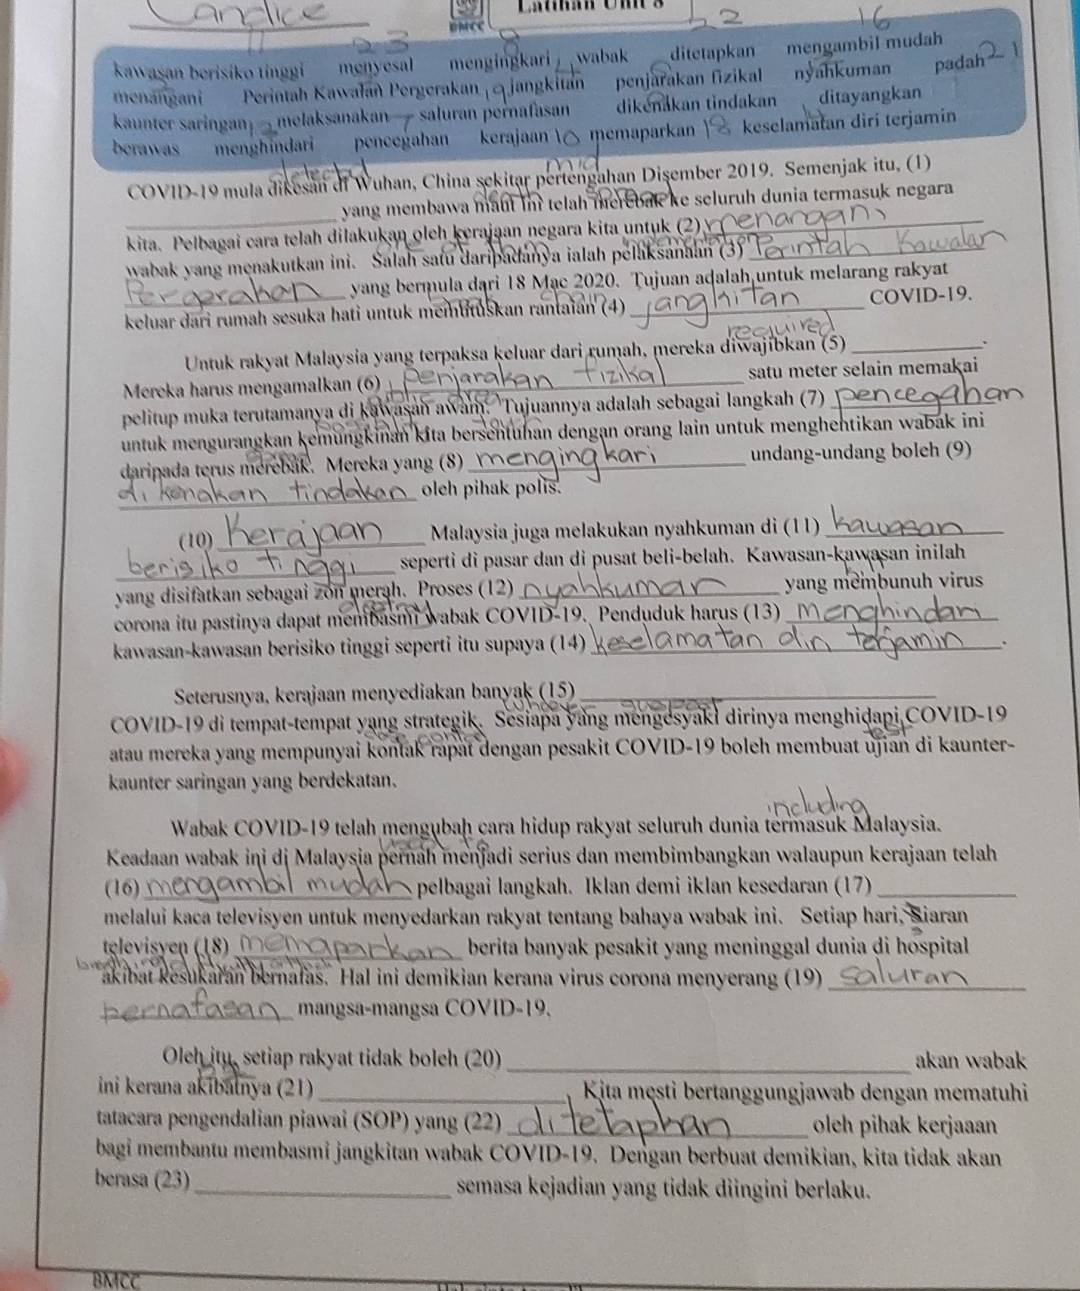 Candice
BMCC
Latihan Unit 8
22
16
11
23
9
kawasan berisiko tinggi menyesal mengingkari wabak ditetapkan mengambil mudah
menangani Perintah Kawalan Pergerakan jangkitan penjarakan fizikal nyahkuman padah 21
kaunter saringan melaksanakan saluran pernafasan dikenakan tindakan ditayangkan
berawas menghindari pencegahan kerajaan 10 memaparkan 18 keselamatan diri terjamin
detected mid
COVID-19 mula dikesan di Wuhan, China sekitar pertengahan Disember 2019. Semenjak itu, (1)
spread
yang membawa maut ini telah merebak ke seluruh dunia termasuk negara
kita. Pelbagai cara telah dilakukan oleh kerajaan negara kita untuk (2) menangani
wabak yang menakutkan ini. Salah satu daripadanya ialah pelaksanaan (3) Perintah Kawalan
Pergerakan yang bermula dari 18 Mac 2020. Tujuan adalah untuk melarang rakyat
keluar dari rumah sesuka hati untuk memutuskan rantaian (4) janghitan COVID-19.
required
Untuk rakyat Malaysia yang terpaksa keluar dari rumah, mereka diwajibkan (5)
Mereka harus mengamalkan (6) penjarakan fizikal satu meter selain memakai
public area
pelitup muka terutamanya di kawasan awam. Tujuannya adalah sebagai langkah (7) pencegahan
touch
untuk mengurangkan kemungkinan kita bersentuhan dengan orang lain untuk menghehtikan wabak ini
daripada terus merebak. Mereka yang (8) mengingkari undang-undang boleh (9)
dikenakan tindakan oleh pihak polis.
(10) Kerajaan Malaysia juga melakukan nyahkuman di (11) kawasan
berisiko tinggi seperti di pasar dan di pusat beli-belah. Kawasan-kawasan inilah
yang disifatkan sebagai zon merah. Proses (12) nyahkuman yang membunuh virus
corona itu pastinya dapat membasmi wabak COVID-19. Penduduk harus (13) Menghindari
kawasan-kawasan berisiko tinggi seperti itu supaya (14) keselamatan diri terjamin.
Seterusnya, kerajaan menyediakan banyak (15)
whoever suspect
COVID-19 di tempat-tempat yang strategik. Sesiapa yang mengesyaki dirinya menghidapi COVID-19
close contact test
atau mereka yang mempunyai kontak rapat dengan pesakit COVID-19 boleh membuat ujian di kaunter-
kaunter saringan yang berdekatan.
including
Wabak COVID-19 telah mengubah cara hidup rakyat seluruh dunia termasuk Malaysia.
used to
Keadaan wabak ini di Malaysia pernah menjadi serius dan membimbangkan walaupun kerajaan telah
(16) mengambil mudah pelbagai langkah. Iklan demi iklan kesedaran (17)
melalui kaca televisyen untuk menyedarkan rakyat tentang bahaya wabak ini. Setiap hari, Siaran
televisyen (18) memaparkan berita banyak pesakit yang meninggal dunia di hospital
akibat kesukaran bernafas. Hal ini demikian kerana virus corona menyerang (19) saluran
pernafasan mangsa-mangsa COVID-19.
Oleh itu, setiap rakyat tidak boleh (20) akan wabak
ini kerana akibatnya (21) Kita mesti bertanggungjawab dengan mematuhi
tatacara pengendalian piawai (SOP) yang (22) ditetaphan oleh pihak kerjaaan
bagi membantu membasmi jangkitan wabak COVID-19. Dengan berbuat demikian, kita tidak akan
berasa (23) semasa kejadian yang tidak diingini berlaku.
BMCC